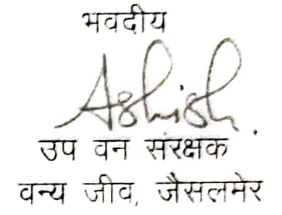 भवदीय
Ashish
उप वन संरक्षक
वन्य जीव, जैसलमेर